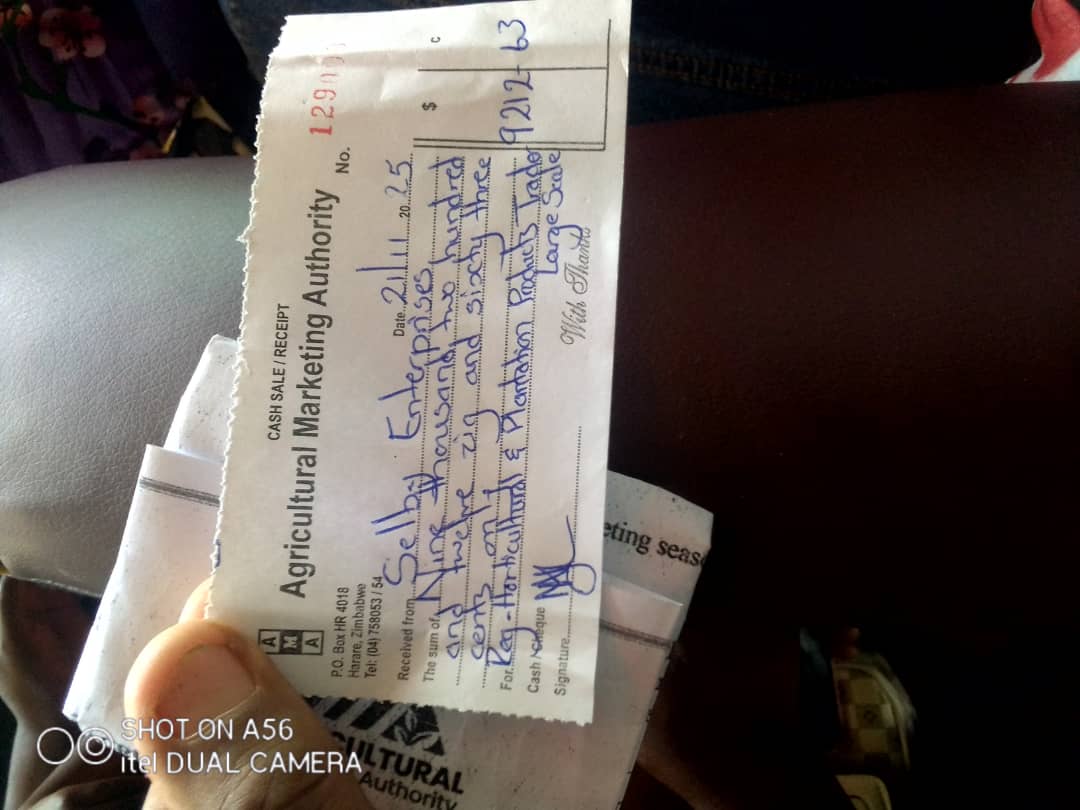 CASH SALE / RECEIPT
A M A
Agricultural Marketing Authority
P.O. Box HR 4018
Harare, Zimbabwe
Tel: (04) 758053 / 54
No.
Date 21/11 2025
Received from Enterprises
The sum of Nine thousand two hundred
and twelve zig and sixty three
cents only
$ c
9212-63
For Reg-Horticultural & Plantation Products Trader
Large Scale
Cash / Cheque
With Thanks
Signature
eting seas
CULTURAL
Authority
SHOT ON A56
itel DUAL CAMERA